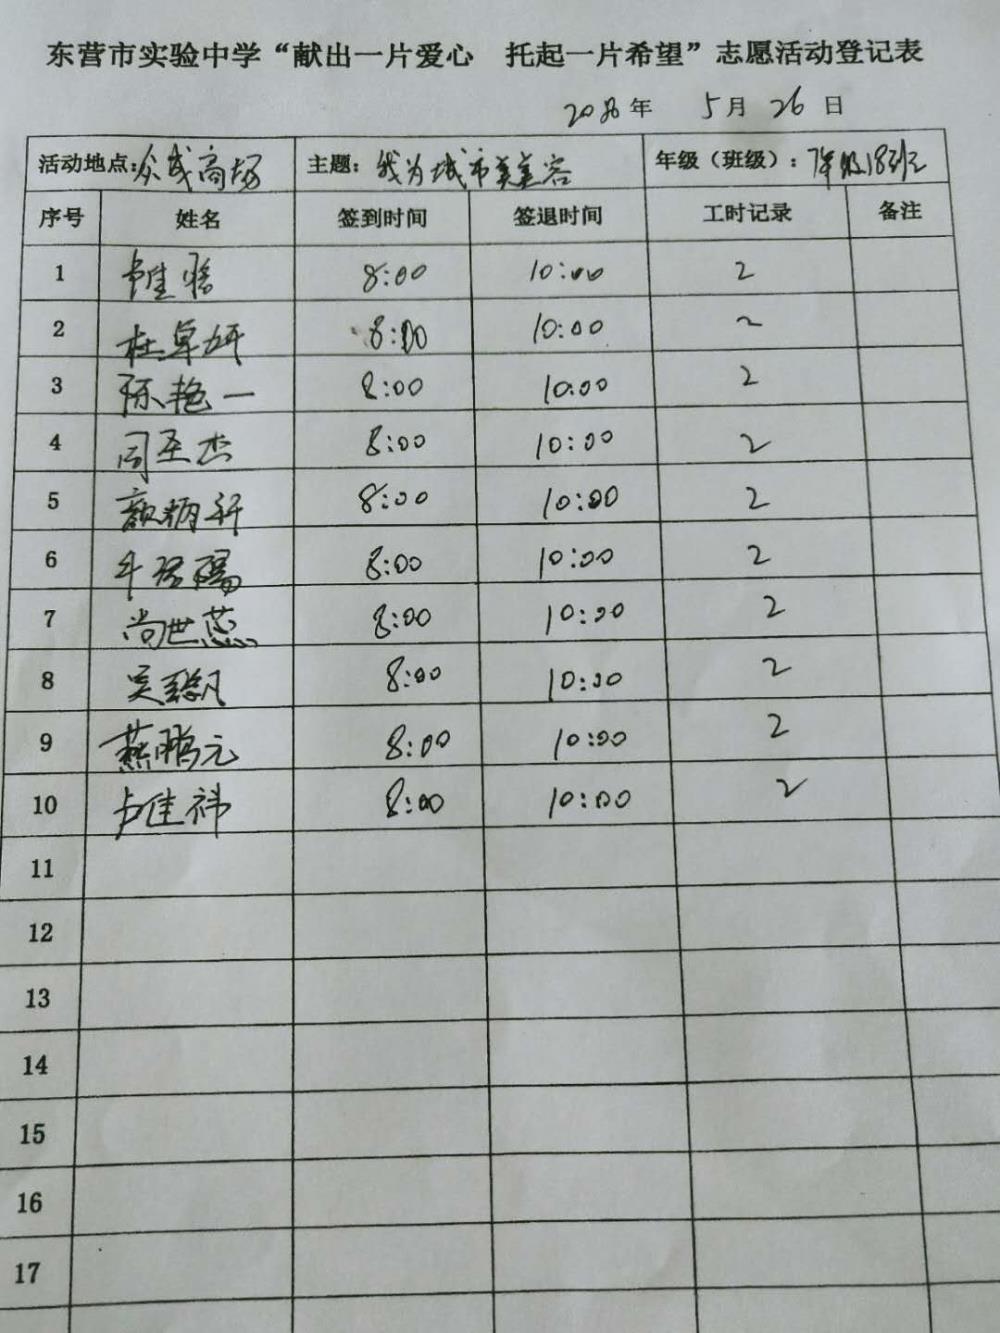 东营市实验中学“献出一片爱心 托起一片希望”志愿活动登记表
年 5月26日
活动地点:众成商场 主题:我为城市美美容 年级（班级）:7年级18班
序号 姓名 签到时间 签退时间 工时记录 备注
1 8:00 10:00 2
2 杜卓妍 8:00 10:00 2
3 陈艳一 8:00 10:00 2
4 周圣杰 8:00 10:00 2
5 颜炳轩 8:00 10:00 2
6 8:00 10:00 2
7 尚世蕊 8:00 10:00 2
8 吴聪凡 8:00 10:00 2
9 燕鹏元 8:00 10:00 2
10 卢佳祎 8:00 10:00 2
11
12
13
14
15
16
17